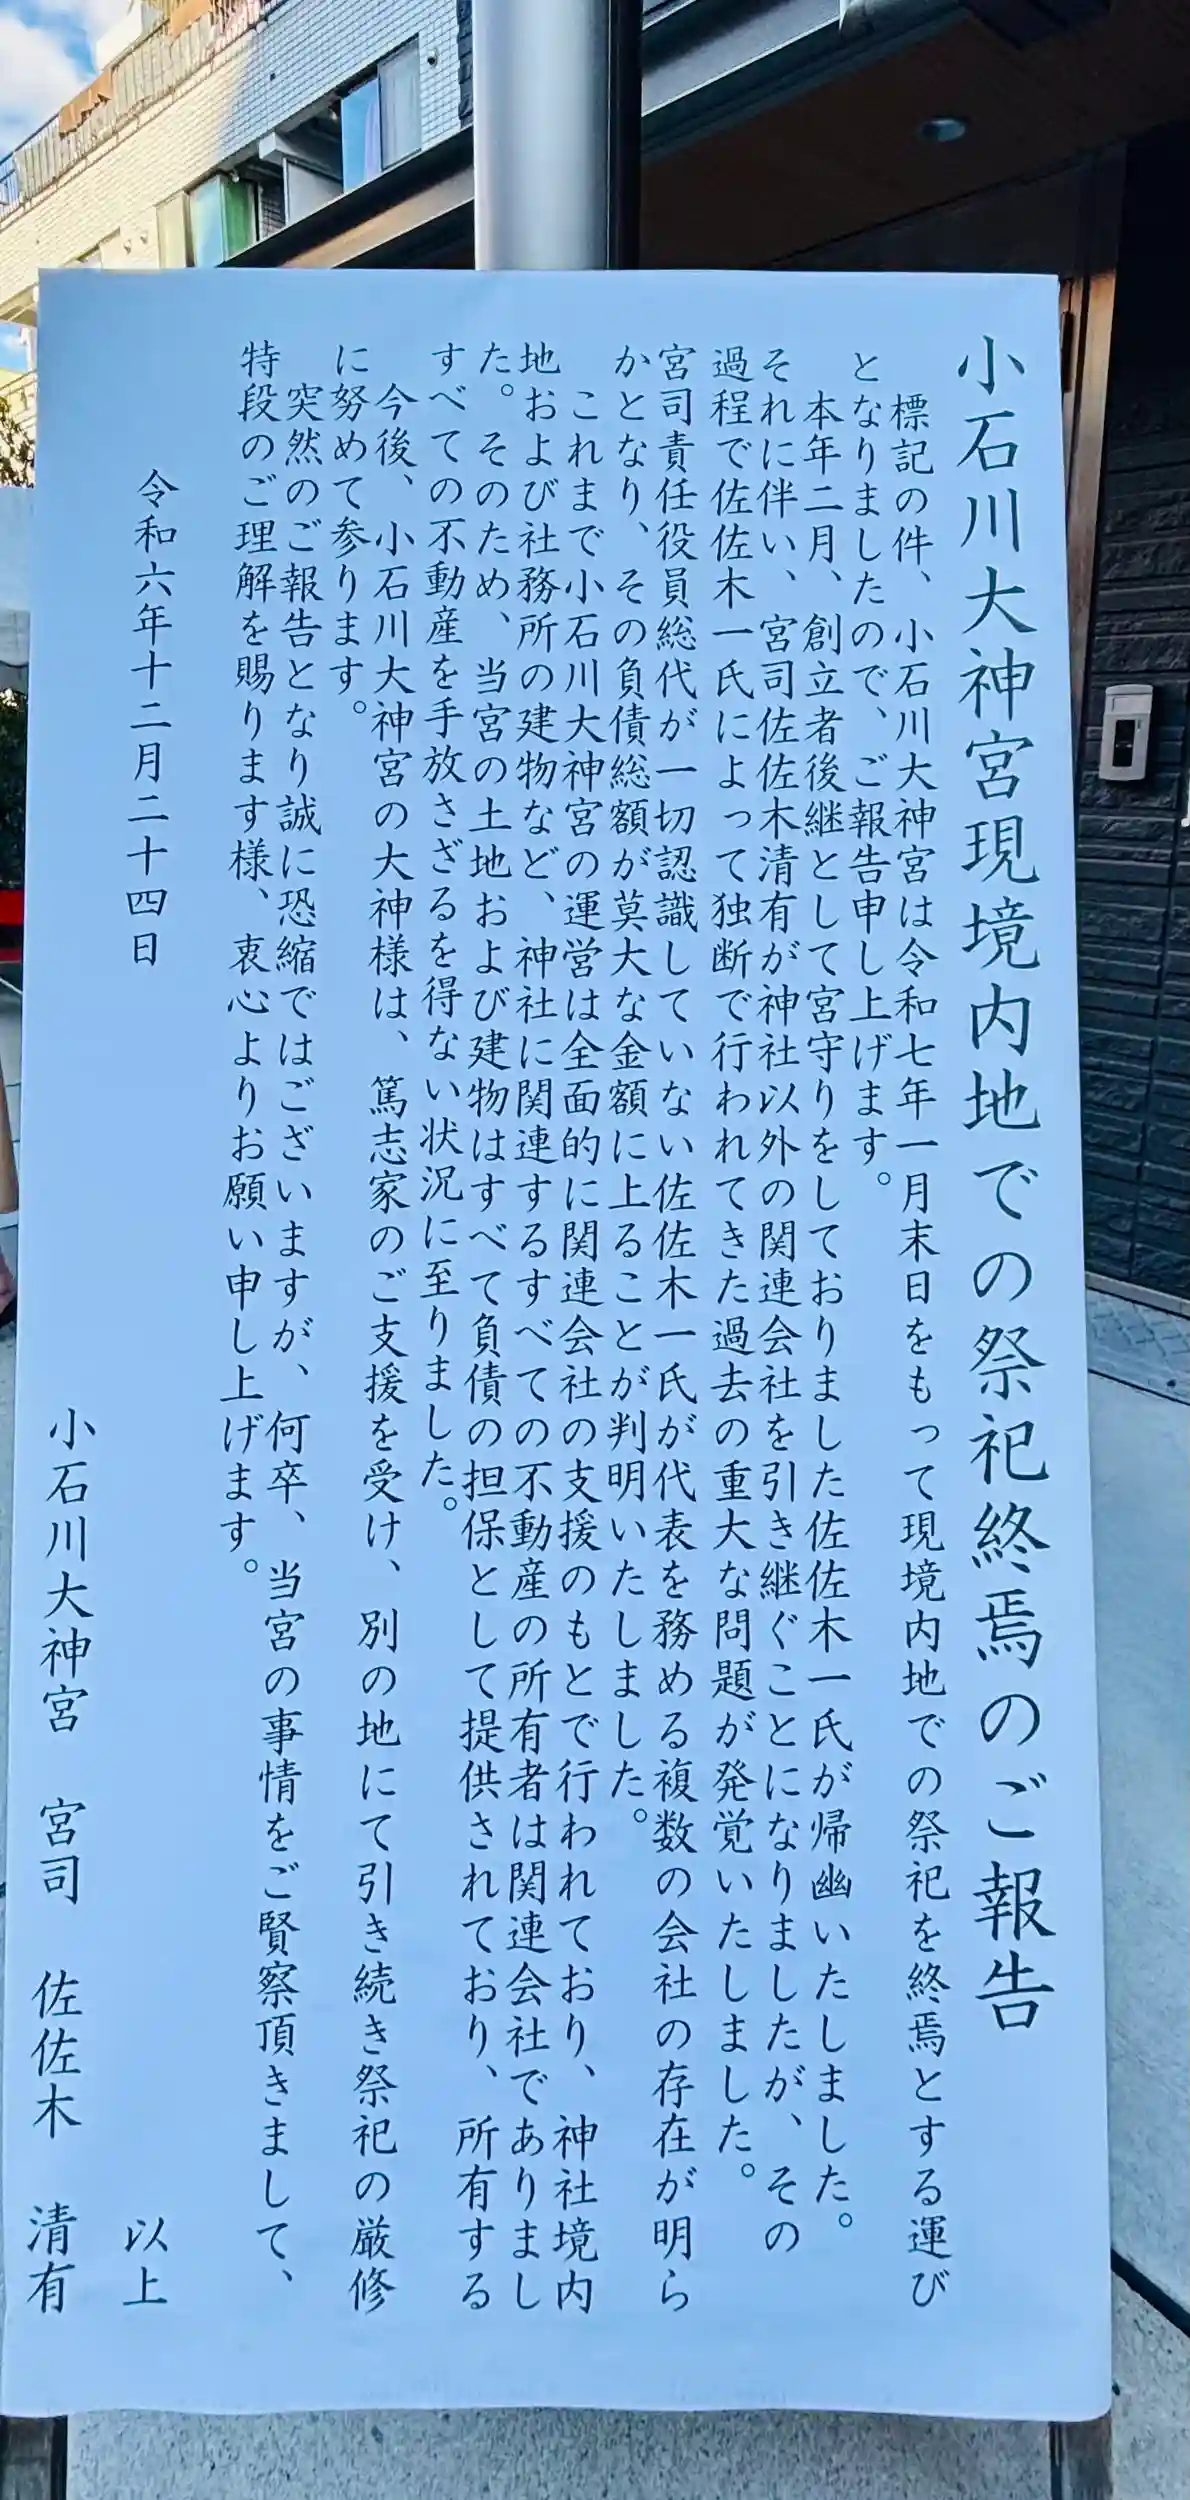 小石川大神宮現境内地での祭祀終焉のご報告
標記の件、小石川大神宮は令和七年一月末日をもって現境内地での祭祀を終焉とする運び
となりましたので、ご報告申し上げます。
本年二月、創立者後継として宮守りをしておりました佐佐木一氏が帰幽いたしました。
それに伴い、宮司佐佐木清有が神社以外の関連会社を引き継ぐことになりましたが、その
過程で佐佐木一氏によって独断で行われてきた過去の重大な問題が発覚いたしました。
宮司責任役員総代が一切認識していない佐佐木一氏が代表を務める複数の会社の存在が明ら
かとなり、その負債総額が莫大な金額に上ることが判明いたしました。
これまで小石川大神宮の運営は全面的に関連会社の支援のもとで行われており、神社境内
地および社務所の建物など、神社に関連するすべての不動産の所有者は関連会社でありまし
た。そのため、当宮の土地および建物はすべて負債の担保として提供されており、所有する
すべての不動産を手放さざるを得ない状況に至りました。
今後、小石川大神宮の大神様は、篤志家のご支援を受け、別の地にて引き続き祭祀の厳修
に努めて参ります。
突然のご報告となり誠に恐縮ではございますが、何卒、当宮の事情をご賢察頂きまして、
特段のご理解を賜ります様、衷心よりお願い申し上げます。
以上
令和六年十二月二十四日
小石川大神宮 宮司 佐佐木 清有